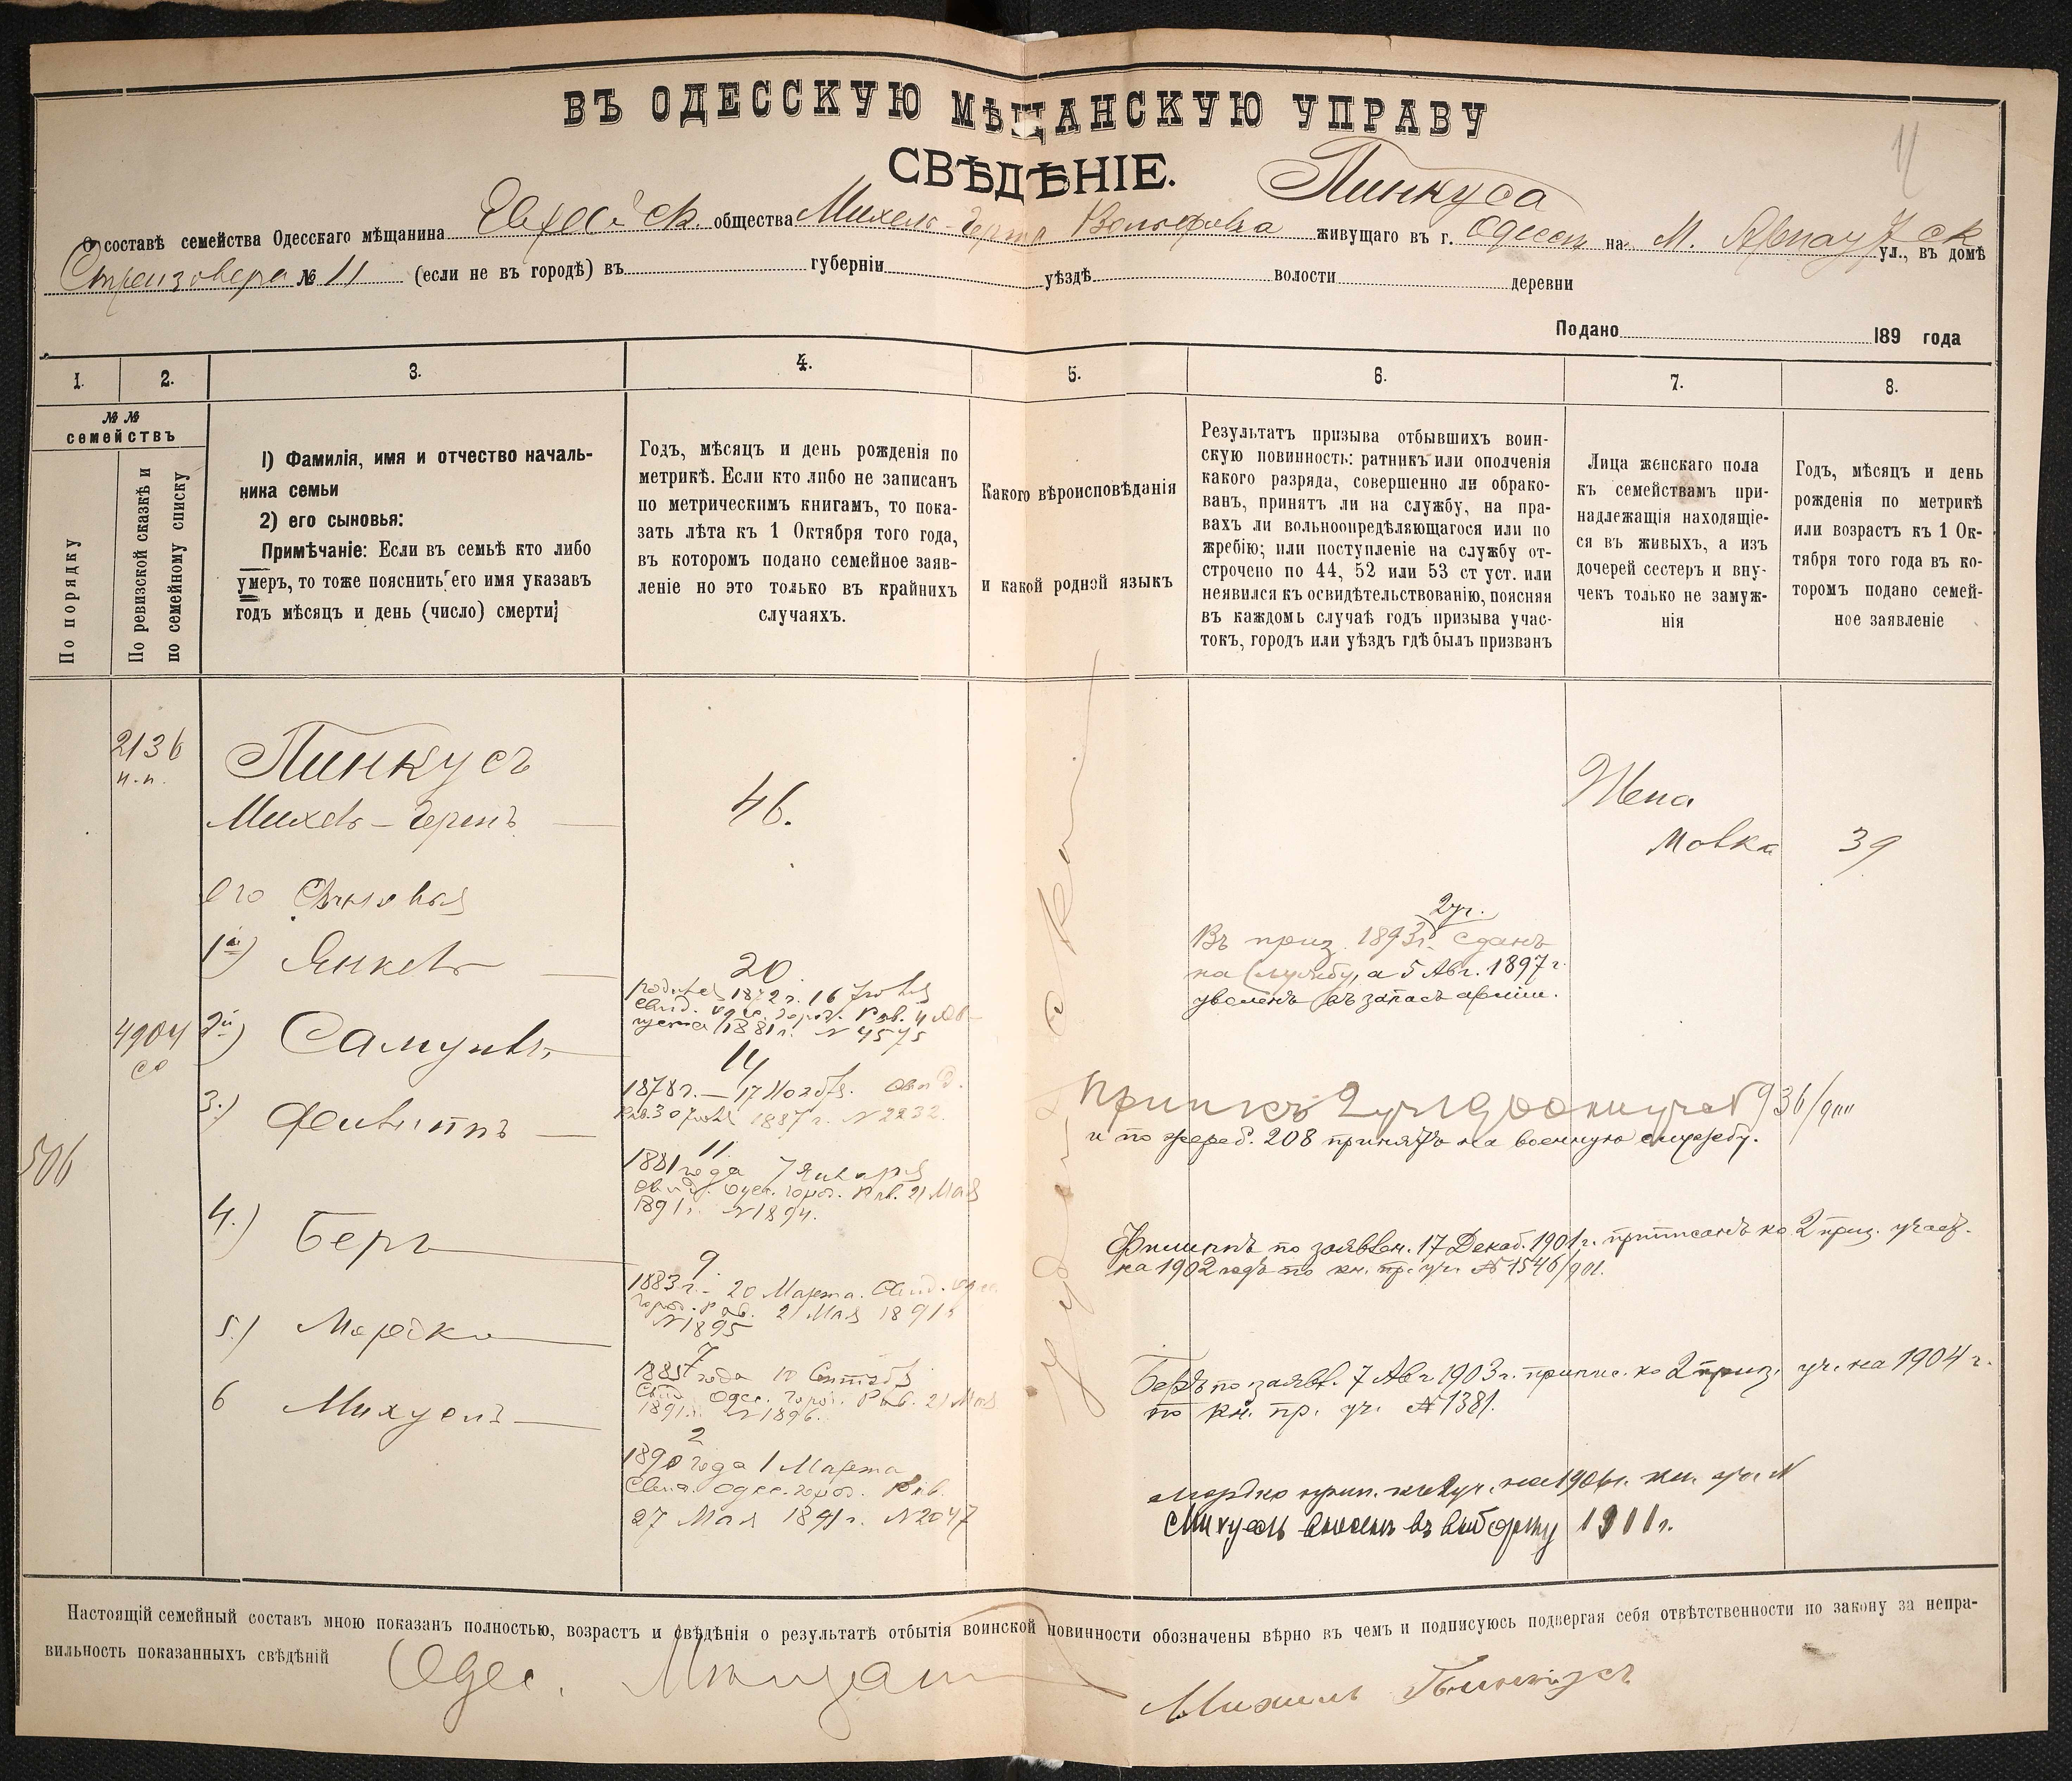 ВЪ ОДЕССКУЮ МѢЩАНСКУЮ УПРАВУ
СВѢДѢНІЕ.
Пинкуса
О составѣ семейства Одесскаго мѣщанина Еврейск. общества Михель-Герша Вольфова живущаго въ г. Одессѣ на М. Арнаутск ул., въ домѣ
№ 11 (если не въ городѣ) въ губерніи уѣздѣ волости деревни
Подано 189 года
1. 2. 3. 4. 5. 6. 7. 8.
№ №
семействъ
По порядку
По ревизской сказкѣ и
по семейному списку
1) Фамилія, имя и отчество началь-
ника семьи
2) его сыновья:
Примѣчаніе: Если въ семьѣ кто либо
умеръ, то тоже пояснить его имя указавъ
годъ мѣсяцъ и день (число) смерти;
Годъ, мѣсяцъ и день рожденія по
метрикѣ. Если кто либо не записанъ
по метрическимъ книгамъ, то пока-
зать лѣта къ 1 Октября того года,
въ которомъ подано семейное заяв-
леніе но это только въ крайнихъ
случаяхъ.
Какого вѣроисповѣданія
и какой родной языкъ
Результатъ призыва отбывшихъ воин-
скую повинность: ратникъ или ополченія
какого разряда, совершенно ли обрако-
ванъ, принятъ ли на службу, на пра-
вахъ ли вольноопредѣляющагося или по
жребію; или поступленіе на службу от-
строчено по 44, 52 или 53 ст уст. или
неявился къ освидѣтельствованію, поясняя
въ каждомъ случаѣ годъ призыва учас-
токъ, городъ или уѣздъ гдѣ былъ призванъ
Лица женскаго пола
къ семействамъ при-
надлежащія находящіе-
ся въ живыхъ, а изъ
дочерей сестеръ и вну-
чекъ только не замуж-
нія
Годъ, мѣсяцъ и день
рожденія по метрикѣ
или возрастъ къ 1 Ок-
тября того года въ ко-
торомъ подано семей-
ное заявленіе
2136
Пинкусъ
Михель-Гершъ
46.
Жена
Мовка 39
его Сыновья
1й) Янкель
20
родился 1872 г. 16 Іюля
свид. Одес. город. Рав. 4 Ав-
густа 1881 г. N 4575
2уч.
Въ приз. 1893 г. сданъ
на службу, а 5 Авг. 1897 г
уволенъ въ запасъ арміи.
4904
2й) Самуилъ
14
1878 г. — 17 Ноября. свид.
Рав. 30 Іюля 1887 г. N 2232.
и по жереб. 208 принятъ на военную службу.
506
3.) Филиппъ
11
1881 года 7 Января
свид. Одес. город. Рав. 21 Мая
1891 г. N 1894.
Филиппъ по заявлен. 17 Декаб. 1901 г. приписанъ ко 2 приз. участ.
на 1902 годъ по кн. пр. уч. № 1546/901.
4.) Беръ
9
1883 г. — 20 Марта. Свид. Одес
город. Рав. 21 Мая 1891 г
N 1895
Беръ по заявл. 7 Авг 1903 г. припис. ко 2 приз. уч. на 1904 г.
по кн. пр. уч. № 1381.
5.) Мордко
7
1885 года 10 Сентября
Свид. Одес. город. Рав. 21 Мая
1891 г. N 1896.
Мордко прип. ко 2 уч. на 1906 г. кн. пр. N
6 Михуель
2
1890 года 1 Марта
Свид. Одес. город. Рав.
27 Мая 1891 г. N 2047
Михуель внесенъ въ выборку 1911 г.
Іудейск
Настоящій семейный составъ мною показанъ полностью, возрастъ и свѣдѣнія о результатѣ отбытія воинской повинности обозначены вѣрно въ чемъ и подписуюсь подвергая себя отвѣтственности по закону за непра-
вильность показанныхъ свѣдѣній
Одес. Мещан
Михель Пинкусъ